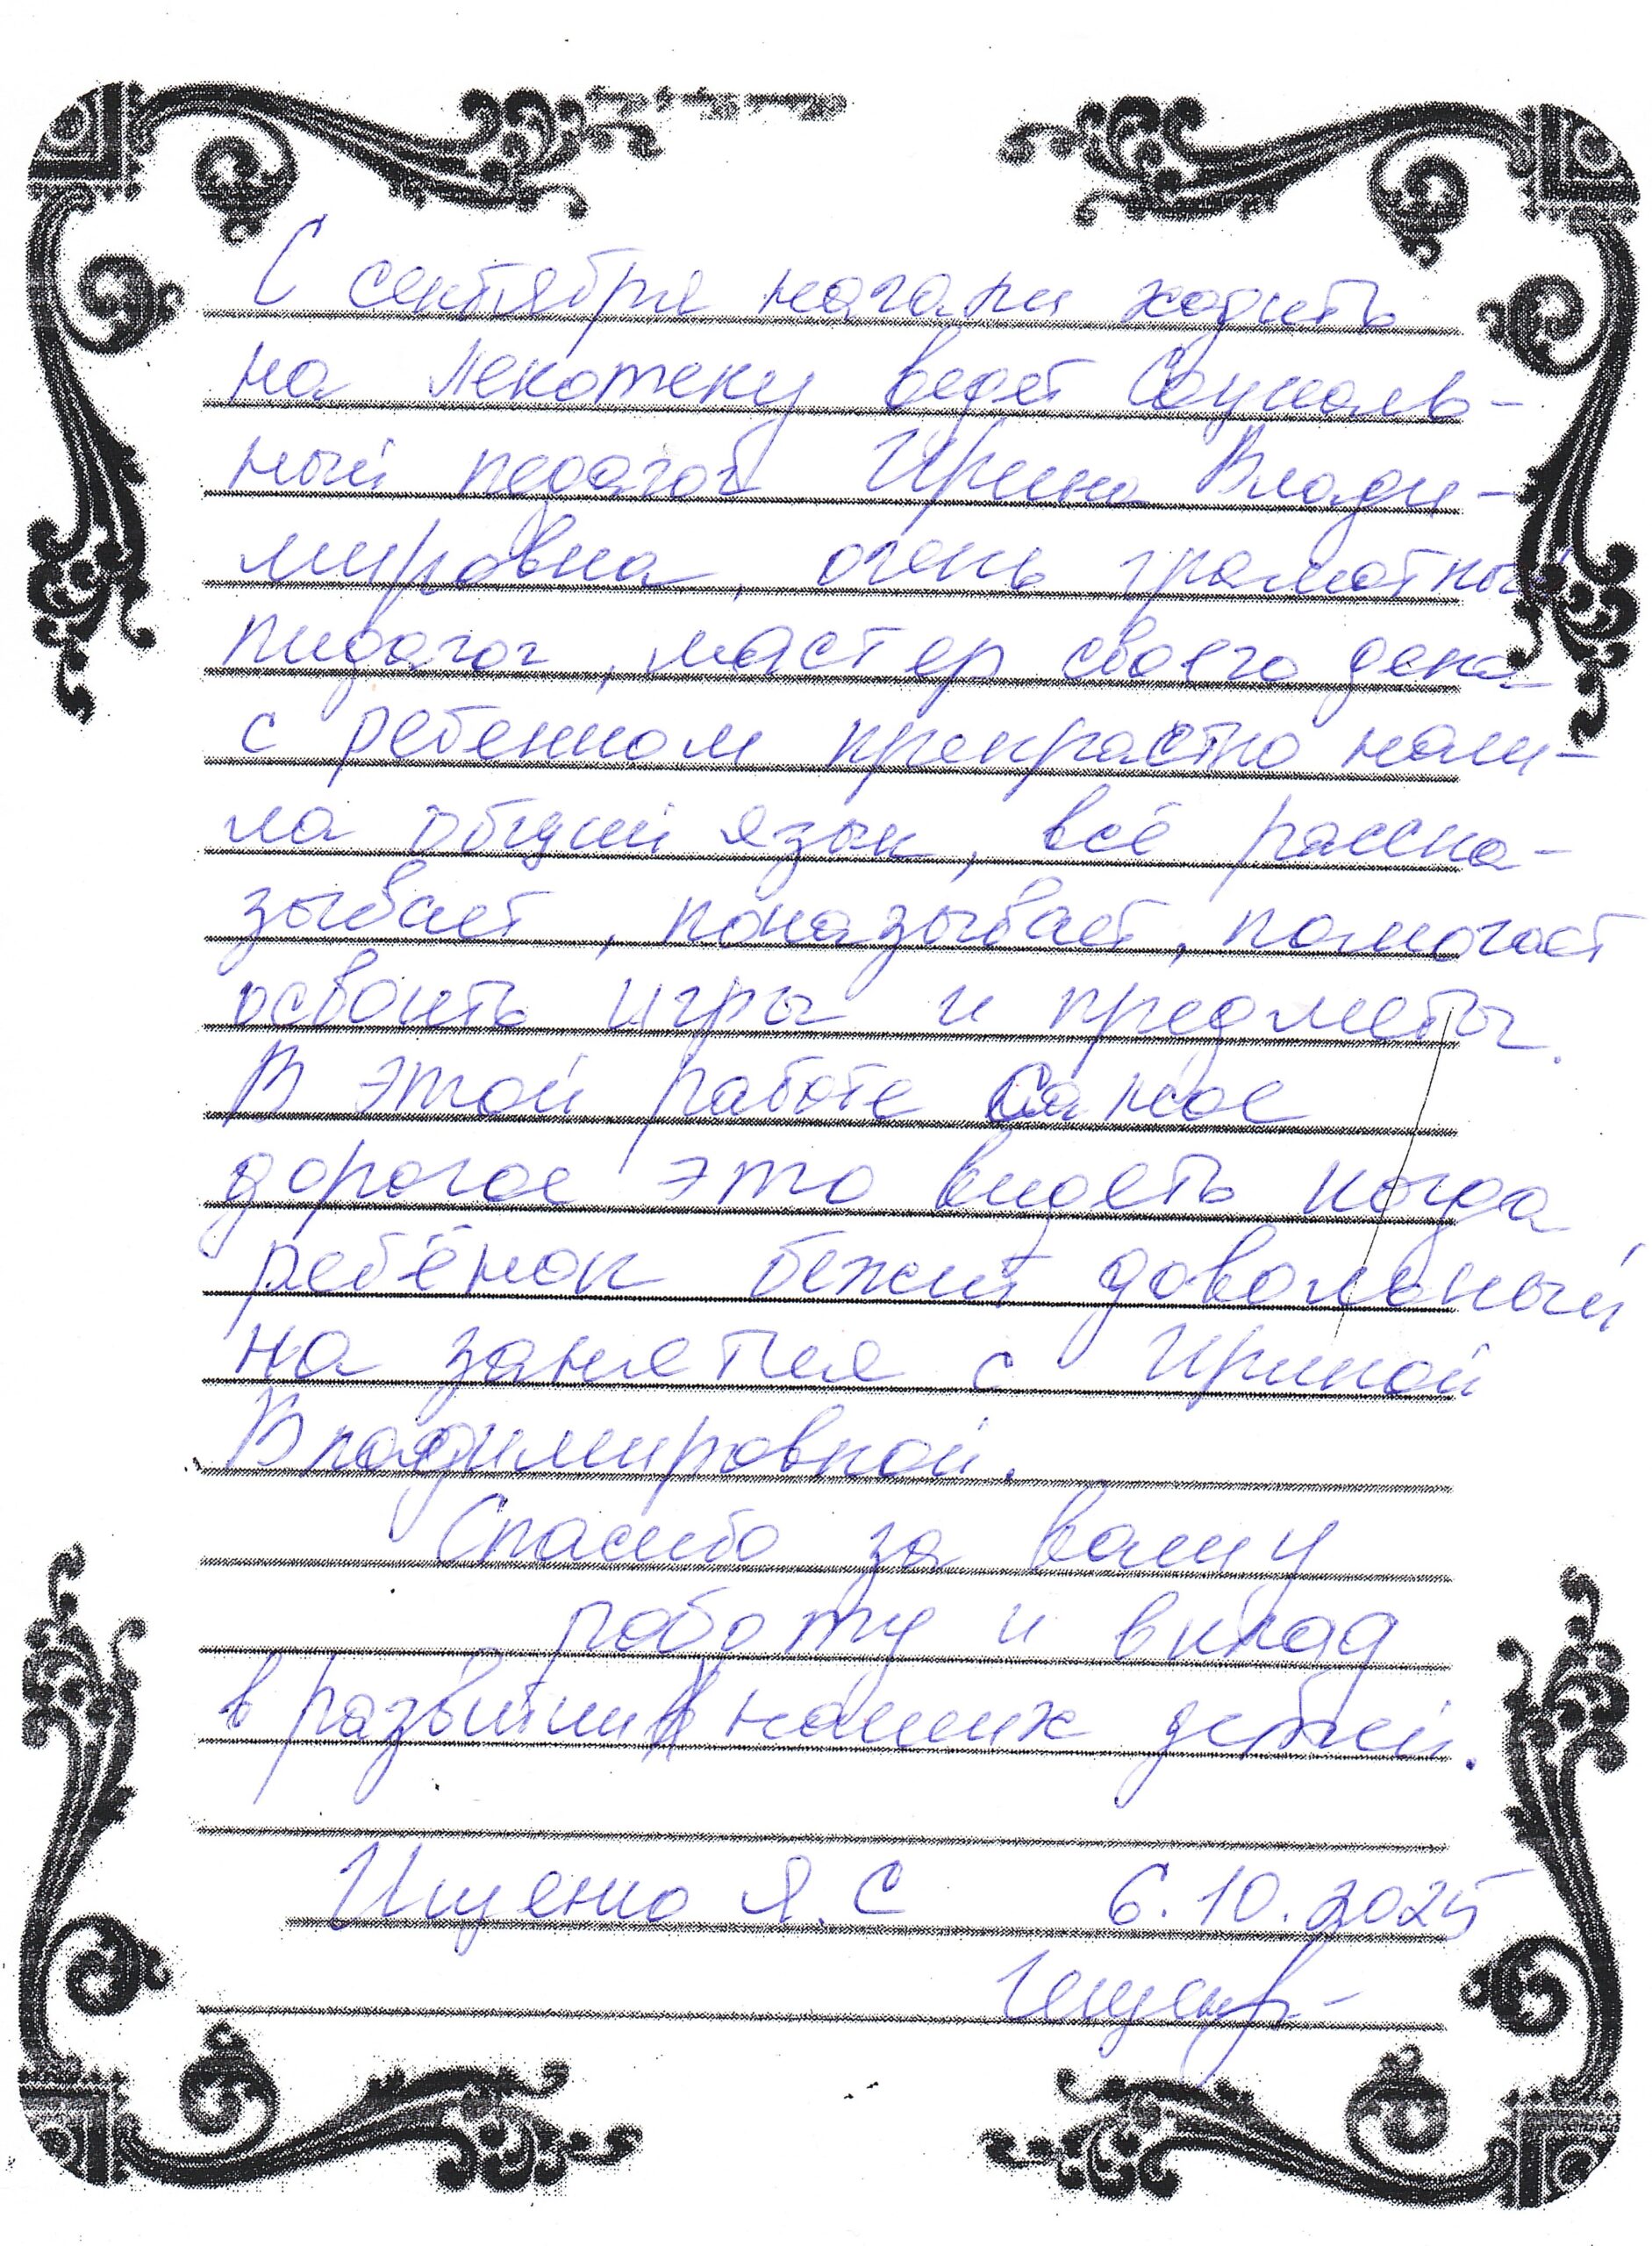 С сентября начали ходить
на лекотеку ведет Социаль-
ный педагог Ирина Влади-
мировна, очень грамотный
пидагог, мастер своего дела
с ребенком прекрастно наш-
ла общий язык, всё расска-
зывает, показывает, помогает
освоить игры и предметы.
В этой работе самое
дорогое это видеть когда
ребёнок бежит довольный
на занятия с Ириной
Владимировной.
Спасибо за вашу
работу и вклад
в развитии наших детей.
Ищенко Я.С 6.10.2025